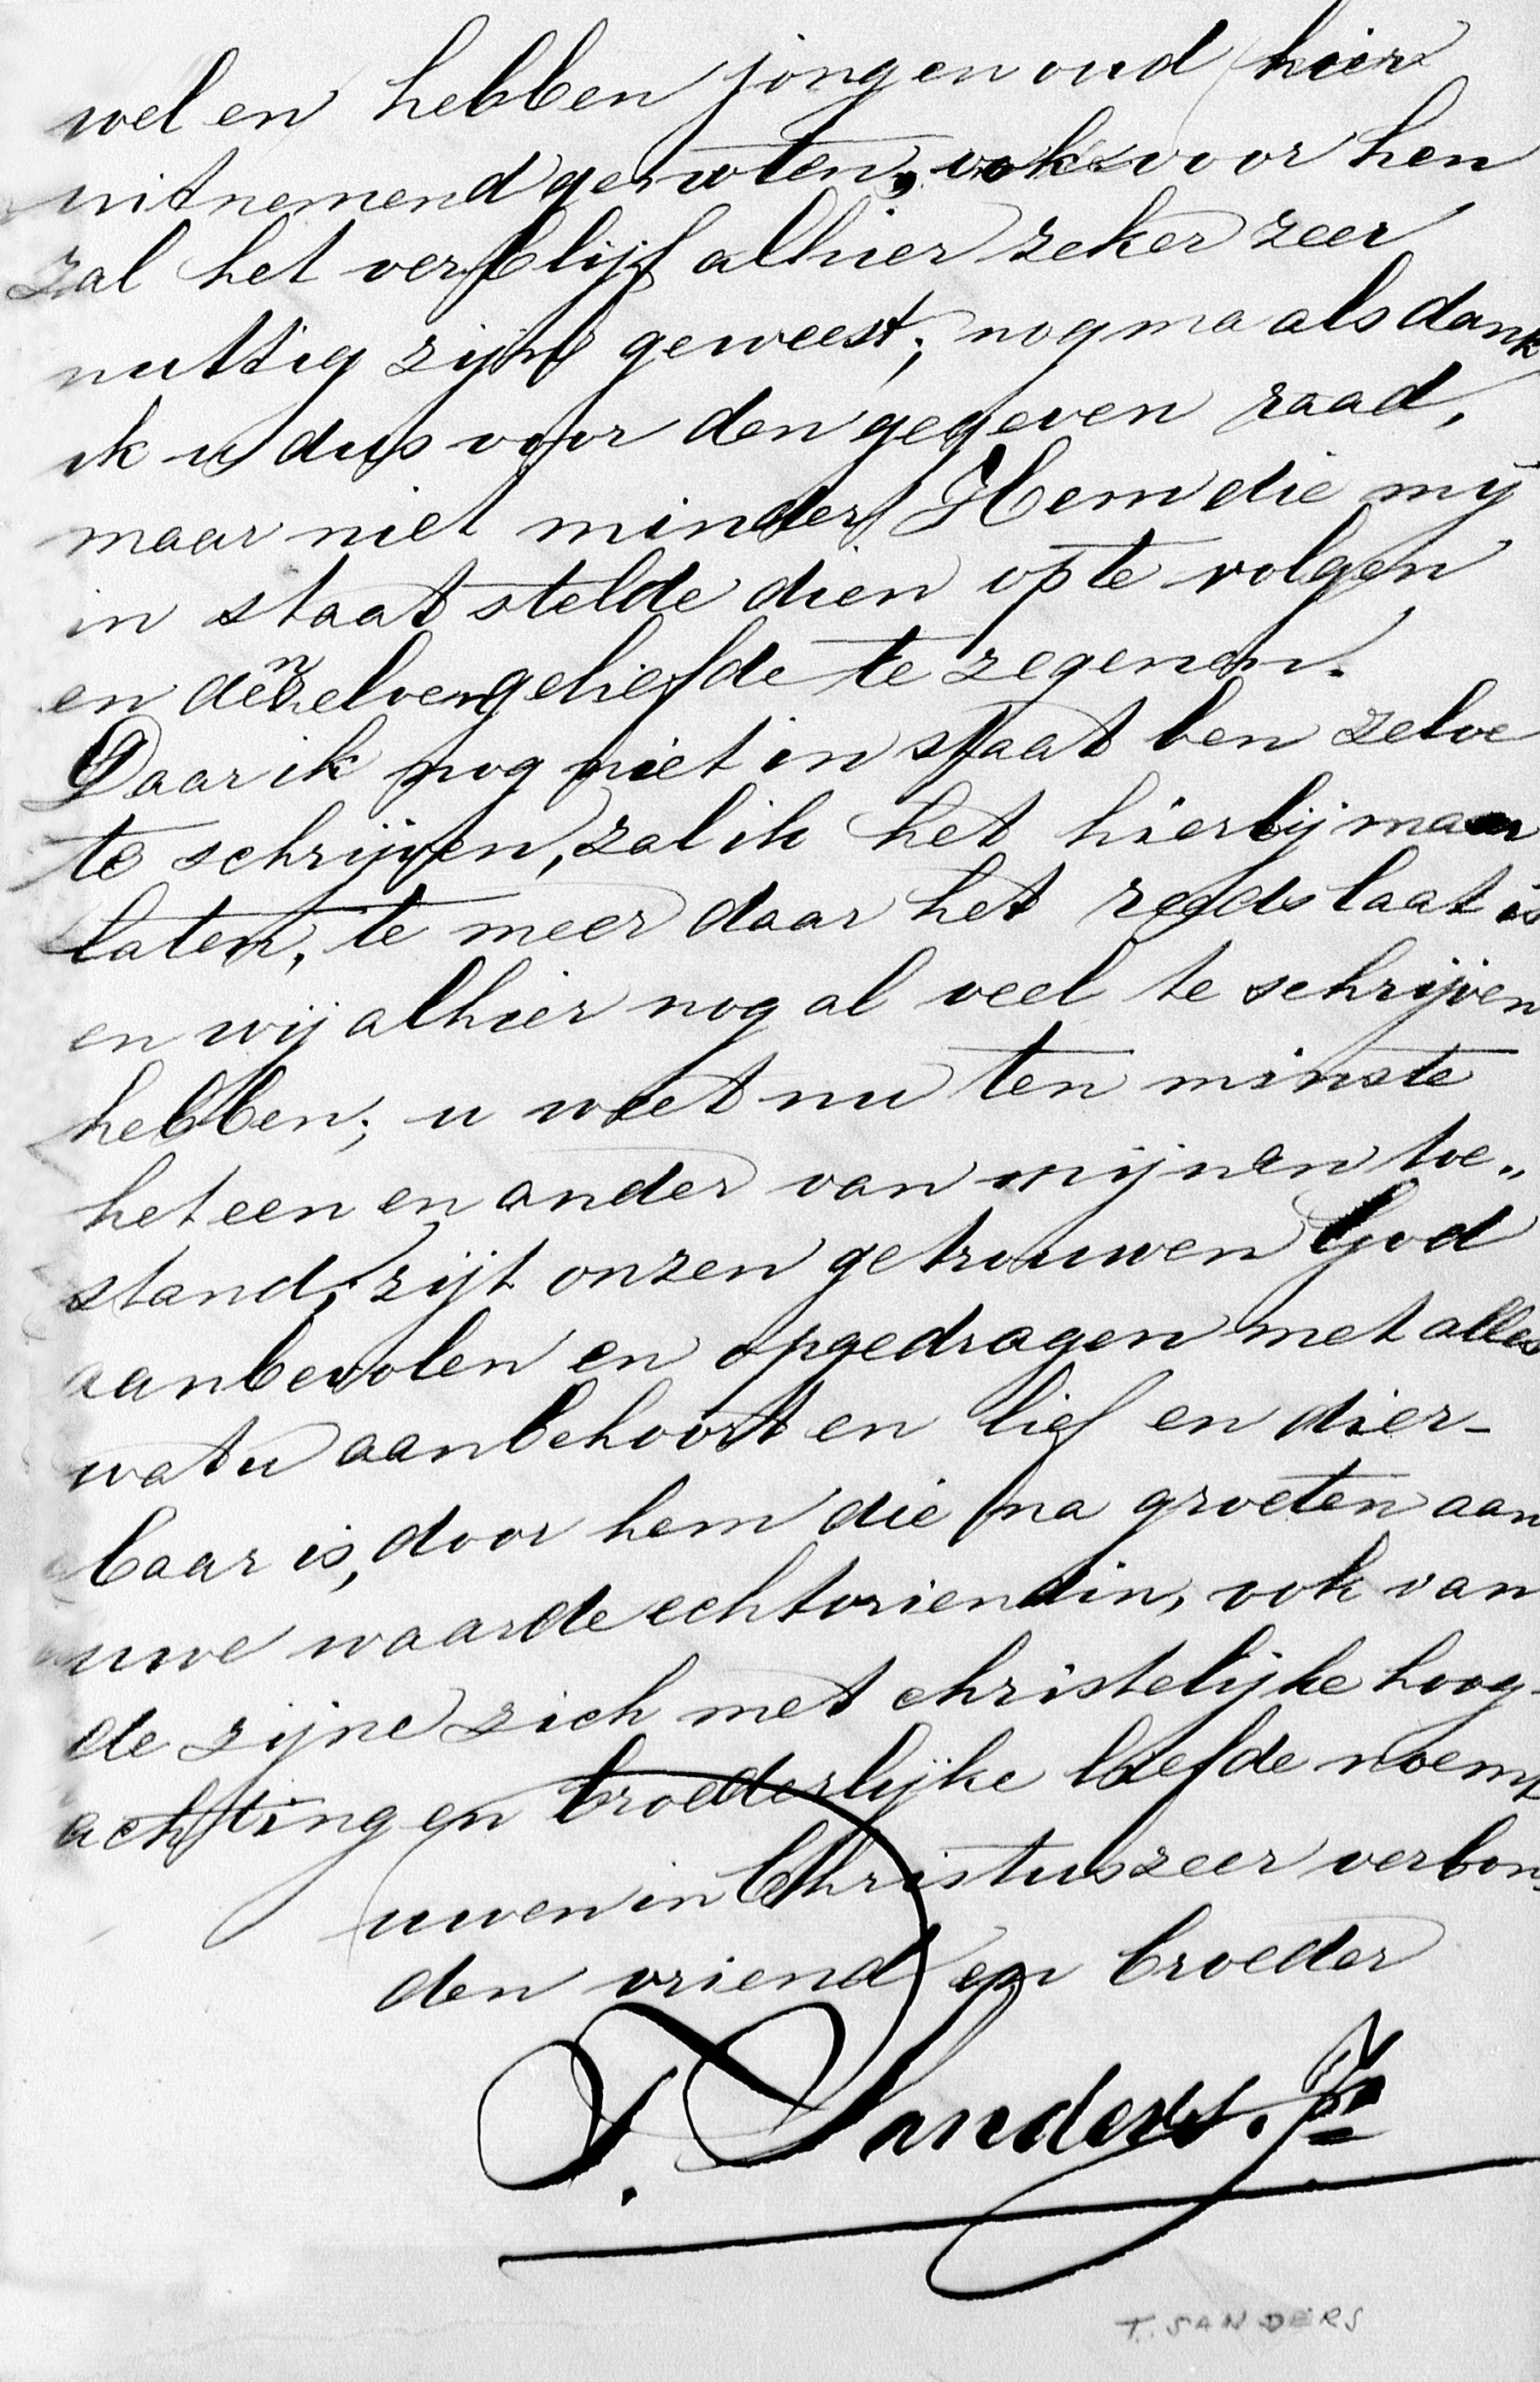 wel en hebben jong en oud hier
uitnemend genoten, ook voor hen
zal het verblijf alhier zeker zeer
nuttig zijn geweest; nogmaals dank
ik u dus voor den gegeven raad,
maar niet minder Hem die mij
in staat stelde dien op te volgen
en denzelven geliefde te zegenen.
Daar ik nog niet in staat ben zelve
te schrijven, zal ik het hierbij maar
laten, te meer daar het reeds laat is
en wij alhier nog al veel te schrijven
hebben; u weet nu ten minste
het een en ander van mijnen toe„
stand; zijt onzen getrouwen God
aanbevolen en opgedragen met alles
wat u aanbehoort en lief en dier-
baar is, door hem die na groeten aan
uwe waarde echtvriendin, ook van
de zijne zich met christelijke hoog-
achting en broederlijke liefde noemt
uwen in Christus zeer verbon-
den vriend en broeder
T. Sanders. Jr
T. SANDERS